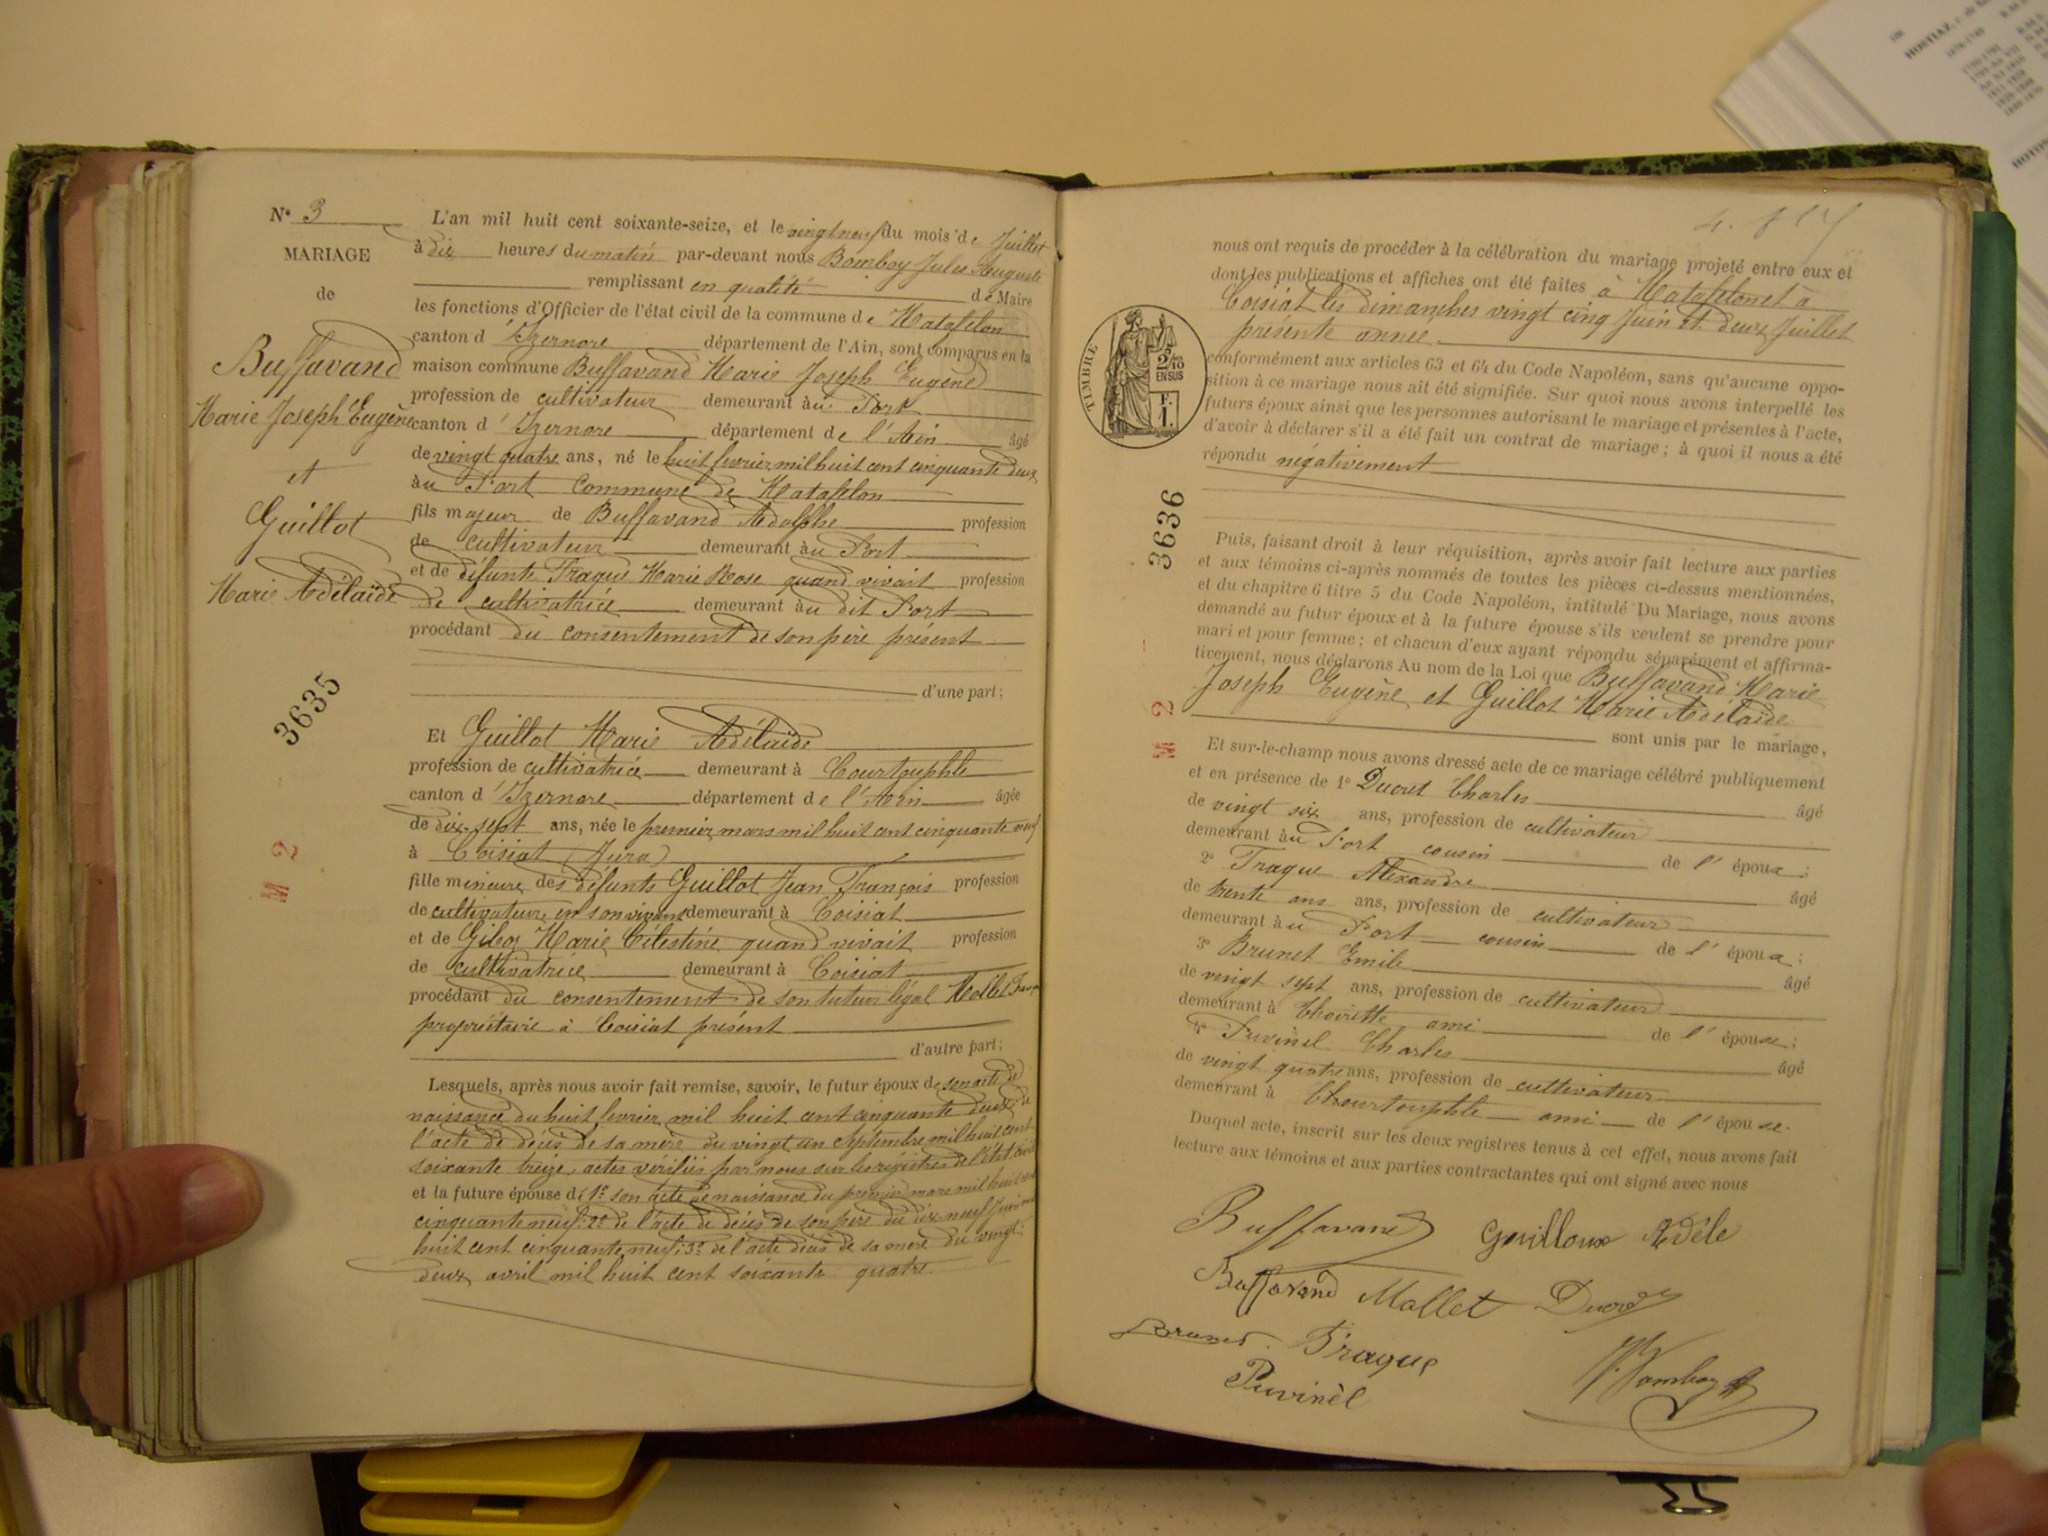 N° 3
MARIAGE
de
Buffavand
Marie Joseph Eugène
et
Guillot
Marie Adélaïde
3635
M 2
L'an mil huit cent soixante-seize, et le vingt neuf du mois de Juillet
à dix heures du matin par-devant nous Bomboy Jules Auguste
remplissant en qualité de Maire
les fonctions d'Officier de l'état civil de la commune de Matafelon
canton d'Izernore département de l'Ain, sont comparus en la
maison commune Buffavand Marie Joseph Eugène
profession de cultivateur demeurant àu Port
canton d'Izernore département de l'Ain âgé
de vingt quatre ans, né le huit fevrier mil huit cent cinquante deux
àu Port Commune de Matafelon
fils majeur de Buffavand Adolphe profession
de cultivateur demeurant àu Port
et de défunte Trague Marie Rose quand vivait profession
de cultivatrice demeurant àu dit Port
procédant du consentement de son père présent
d'une part;
Et Guillot Marie Adélaïde
profession de cultivatrice demeurant à Courtouphle
canton d'Izernore département de l'Ain âgée
de dix-sept ans, née le premier mars mil huit cent cinquante neuf
à Coisiat (Jura)
fille mineure des défunts Guillot Jean François profession
de cultivateur en son vivant demeurant à Coisiat
et de Marie Célestine quand vivait profession
de cultivatrice demeurant à Coisiat
procédant du consentement de son tuteur légal Mollet
propriétaire à Coisiat présent
d'autre part;
Lesquels, après nous avoir fait remise, savoir, le futur époux de son acte de
naissance du huit fevrier mil huit cent cinquante deux de
l'acte de décès de sa mère du vingt un Septembre mil huit cent
soixante treize, actes vérifiés par nous sur les régistres de l'état civil
et la future épouse d 1° son acte de naissance du premier mars mil huit cent
cinquante neuf: 2° de l'acte de décès de son père du dix neuf Juin mil
huit cent cinquante neuf: 3° de l'acte décès de sa mère du vingt
deux avril mil huit cent soixante quatre.
nous ont requis de procéder à la célébration du mariage projeté entre eux et
dont les publications et affiches ont été faites à Matafelon et à
Coisiat les dimanches vingt cinq Juin et deux Juillet
présente année
TIMBRE
2/10
EN SUS
F.
1.
conformément aux articles 63 et 64 du Code Napoléon, sans qu'aucune oppo-
sition à ce mariage nous ait été signifiée. Sur quoi nous avons interpellé les
futurs époux ainsi que les personnes autorisant le mariage et présentes à l'acte,
d'avoir à déclarer s'il a été fait un contrat de mariage; à quoi il nous a été
répondu négativement
3636
M 2
Puis, faisant droit à leur réquisition, après avoir fait lecture aux parties
et aux témoins ci-après nommés de toutes les pièces ci-dessus mentionnées,
et du chapitre 6 titre 5 du Code Napoléon, intitulé Du Mariage, nous avons
demandé au futur époux et à la future épouse s'ils veulent se prendre pour
mari et pour femme; et chacun d'eux ayant répondu séparément et affirma-
tivement, nous déclarons Au nom de la Loi que Buffavand Marie
Joseph Eugène et Guillot Marie Adélaïde
sont unis par le mariage,
Et sur-le-champ nous avons dressé acte de ce mariage célébré publiquement
et en présence de 1° Ducret Charles âgé
de vingt six ans, profession de cultivateur
demeurant àu Port cousin de l'époux;
2° Trague Alexandre âgé
de trente ans ans, profession de cultivateur
demeurant àu Port cousin de l'époux;
3° Brunet Emile âgé
de vingt sept ans, profession de cultivateur
demeurant à ami de l'épouse;
4° Puvinel Charles âgé
de vingt quatre ans, profession de cultivateur
demeurant à Courtouphle ami de l'épouse.
Duquel acte, inscrit sur les deux registres tenus à cet effet, nous avons fait
lecture aux témoins et aux parties contractantes qui ont signé avec nous
Buffavand Guilloux Adèle
Buffavand Mollet Ducret
Brunet Trague
Puvinèl
Bomboy